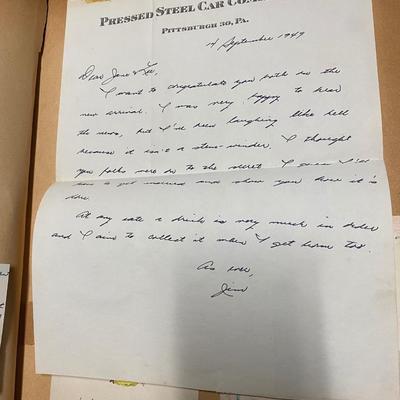 PRESSED STEEL CAR COM
PITTSBURGH 30, PA.
4 September 1949
Dear Jane & Lee,
I want to congratulate you both on the
new arrival. I was very happy to hear
the news, but I've been laughing like hell
because it isn't a stem-winder. I thought
you folks were on to the secret. I guess I'll
have to get married and show you how it is
done.
At any rate a drink is very much in order
and I aim to collect it when I get home too.
As ever,
Jim